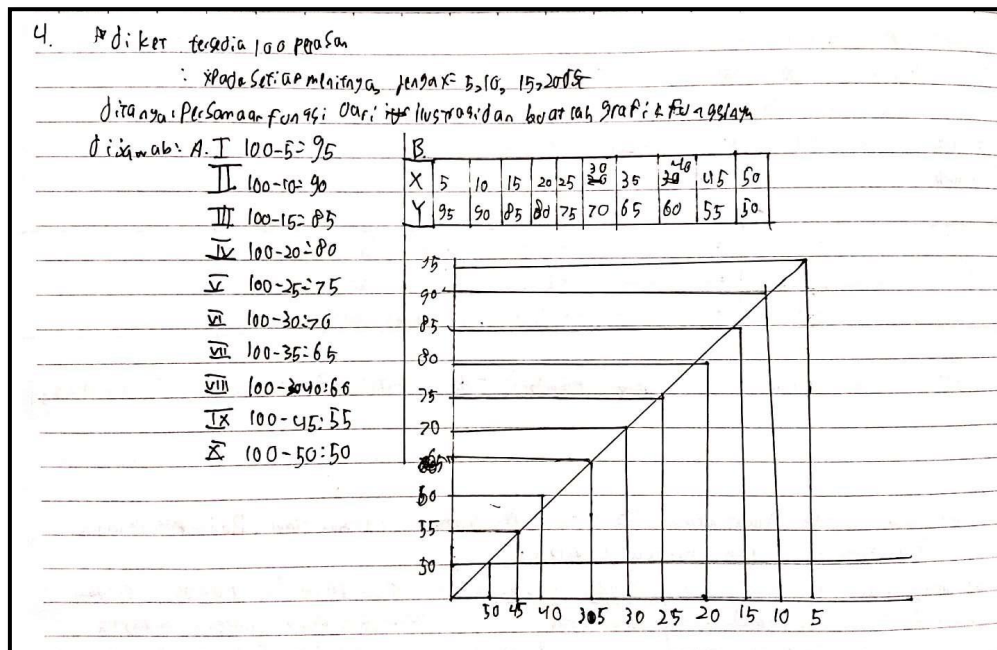 4. diket tersedia 100 pegasan
: Pada setiap menitnya, x= 5, 10, 15, 20
ditanya: Persamaan fungsi dari ilustrasi dan buatlah grafik fungsinya
dijawab: A. I 100-5=95
II 100-10=90
III 100-15=85
IV 100-20=80
V 100-25=75
VI 100-30=70
VII 100-35=65
VIII 100-40=60
IX 100-45=55
X 100-50=50
B.
X 5 10 15 20 25 30 35 40 45 50
Y 95 90 85 80 75 70 65 60 55 50
95
90
85
80
75
70
65
60
55
50
50 45 40 35 30 25 20 15 10 5